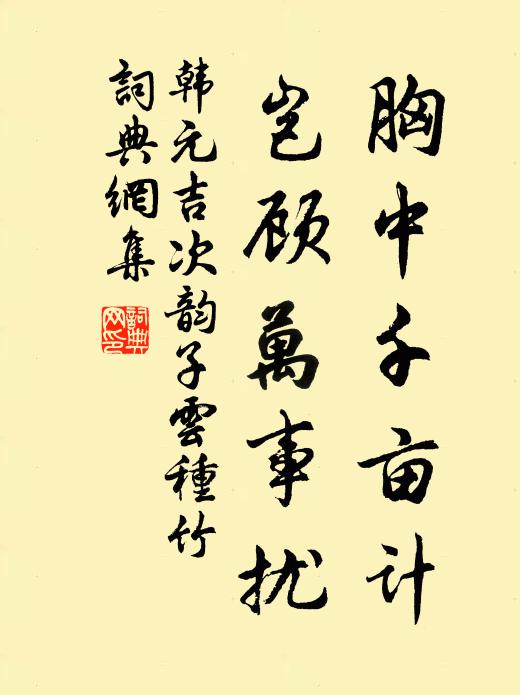 胸中千亩计
岂顾萬事扰
韩元吉次韵子雲種竹
詞典網集
詞典网印